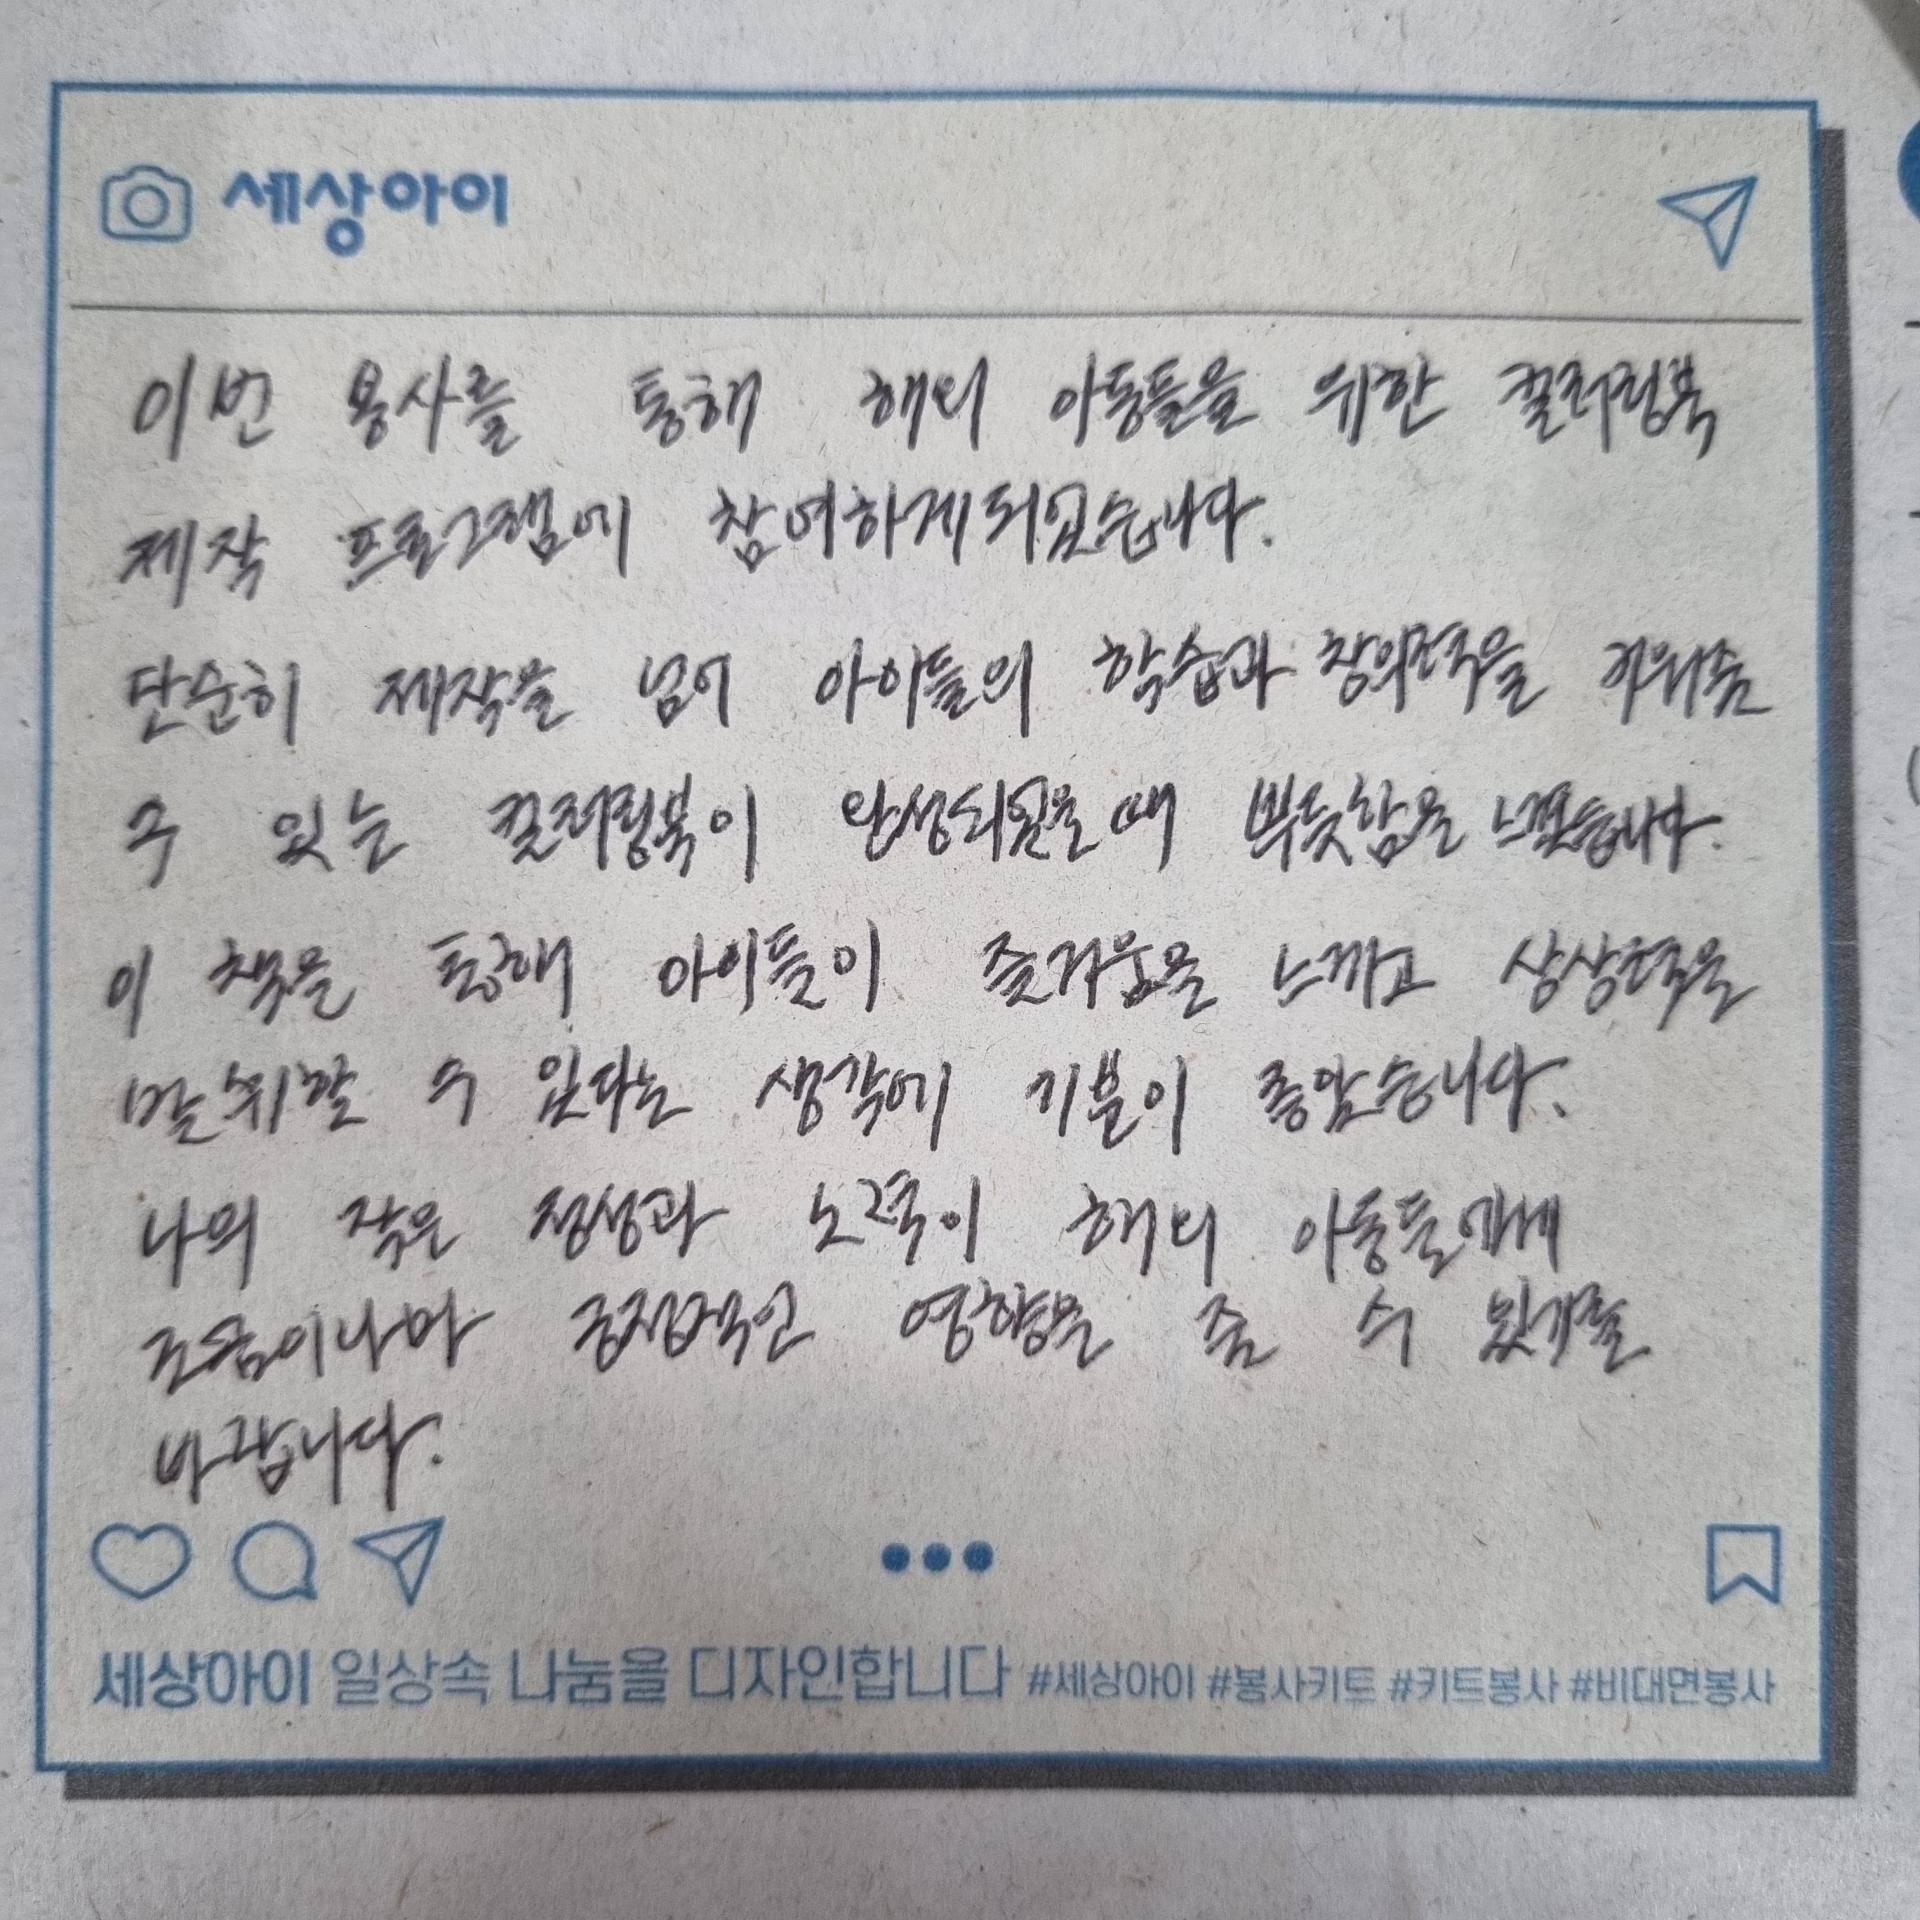 세상아이
이번 봉사를 통해 해외 아동들을 위한 컬러링북
제작 프로그램에 참여하게되었습니다.
단순히 제작을 넘어 아이들의 학습과 창의력을 키워줄
수 있는 컬러링북이 완성되었을 때 뿌듯함을 느꼈습니다.
이 책을 통해 아이들이 즐거움을 느끼고 상상력을
발휘할 수 있다는 생각에 기분이 좋았습니다.
나의 작은 정성과 노력이 해외 아동들에게
조금이나마 긍정적인 영향을 줄 수 있기를
바랍니다.
세상아이 일상속 나눔을 디자인합니다 #세상아이 #봉사키토 #키트봉사 #비대면봉사